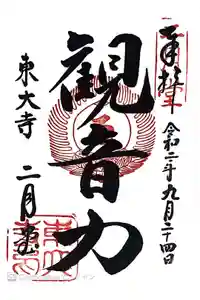 奉拝
令和二年九月二十四日
観音力
東大寺 二月堂